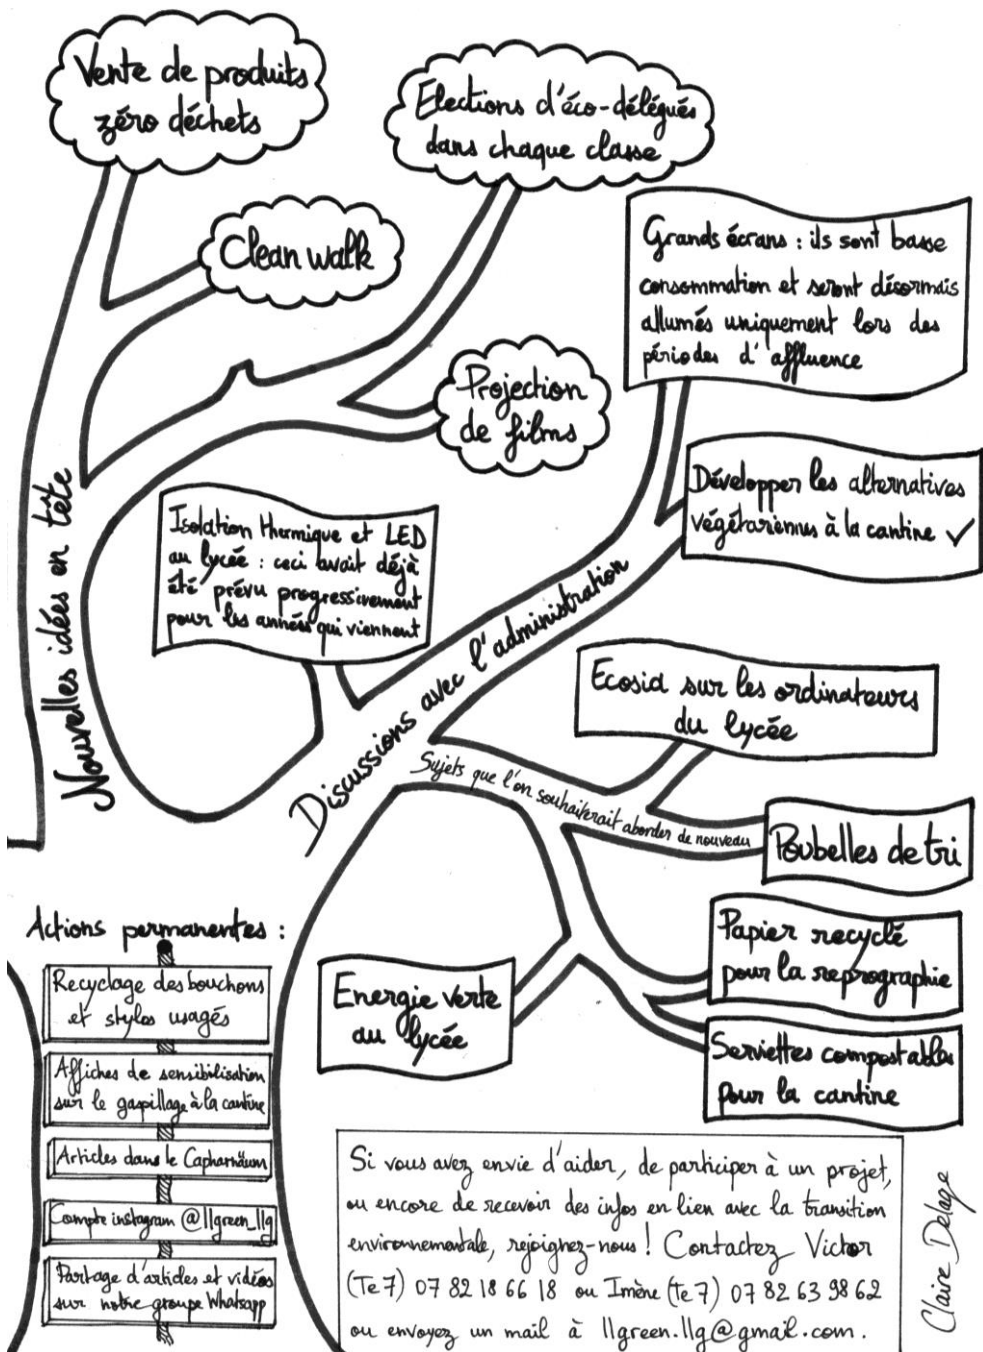 Vente de produits
zéro déchets
Elections d'éco-délégués
dans chaque classe
Clean walk
Projection
de films
Nouvelles idées en tête
Grands écrans : ils sont basse
consommation et seront désormais
allumés uniquement lors des
périodes d'affluence
Développer les alternatives
végétariennes à la cantine ✓
Isolation thermique et LED
au lycée : ceci avait déjà
été prévu progressivement
pour les années qui viennent
Discussions avec l'administration
Sujets que l'on souhaiterait aborder de nouveau
Ecosia sur les ordinateurs
du lycée
Poubelles de tri
Papier recyclé
pour la reprographie
Serviettes compostables
pour la cantine
Energie verte
au lycée
Actions permanentes :
Recyclage des bouchons
et stylos usagés
Affiches de sensibilisation
sur le gaspillage à la cantine
Articles dans le Capharnäum
Compte instagram @llgreen_llg
Partage d'articles et vidéos
sur notre groupe Whatsapp
Si vous avez envie d'aider, de participer à un projet,
ou encore de recevoir des infos en lien avec la transition
environnementale, rejoignez-nous ! Contactez Victor
(Te7) 07 82 18 66 18 ou Imène (te7) 07 82 63 98 62
ou envoyez un mail à llgreen.llg@gmail.com.
Claire Delage